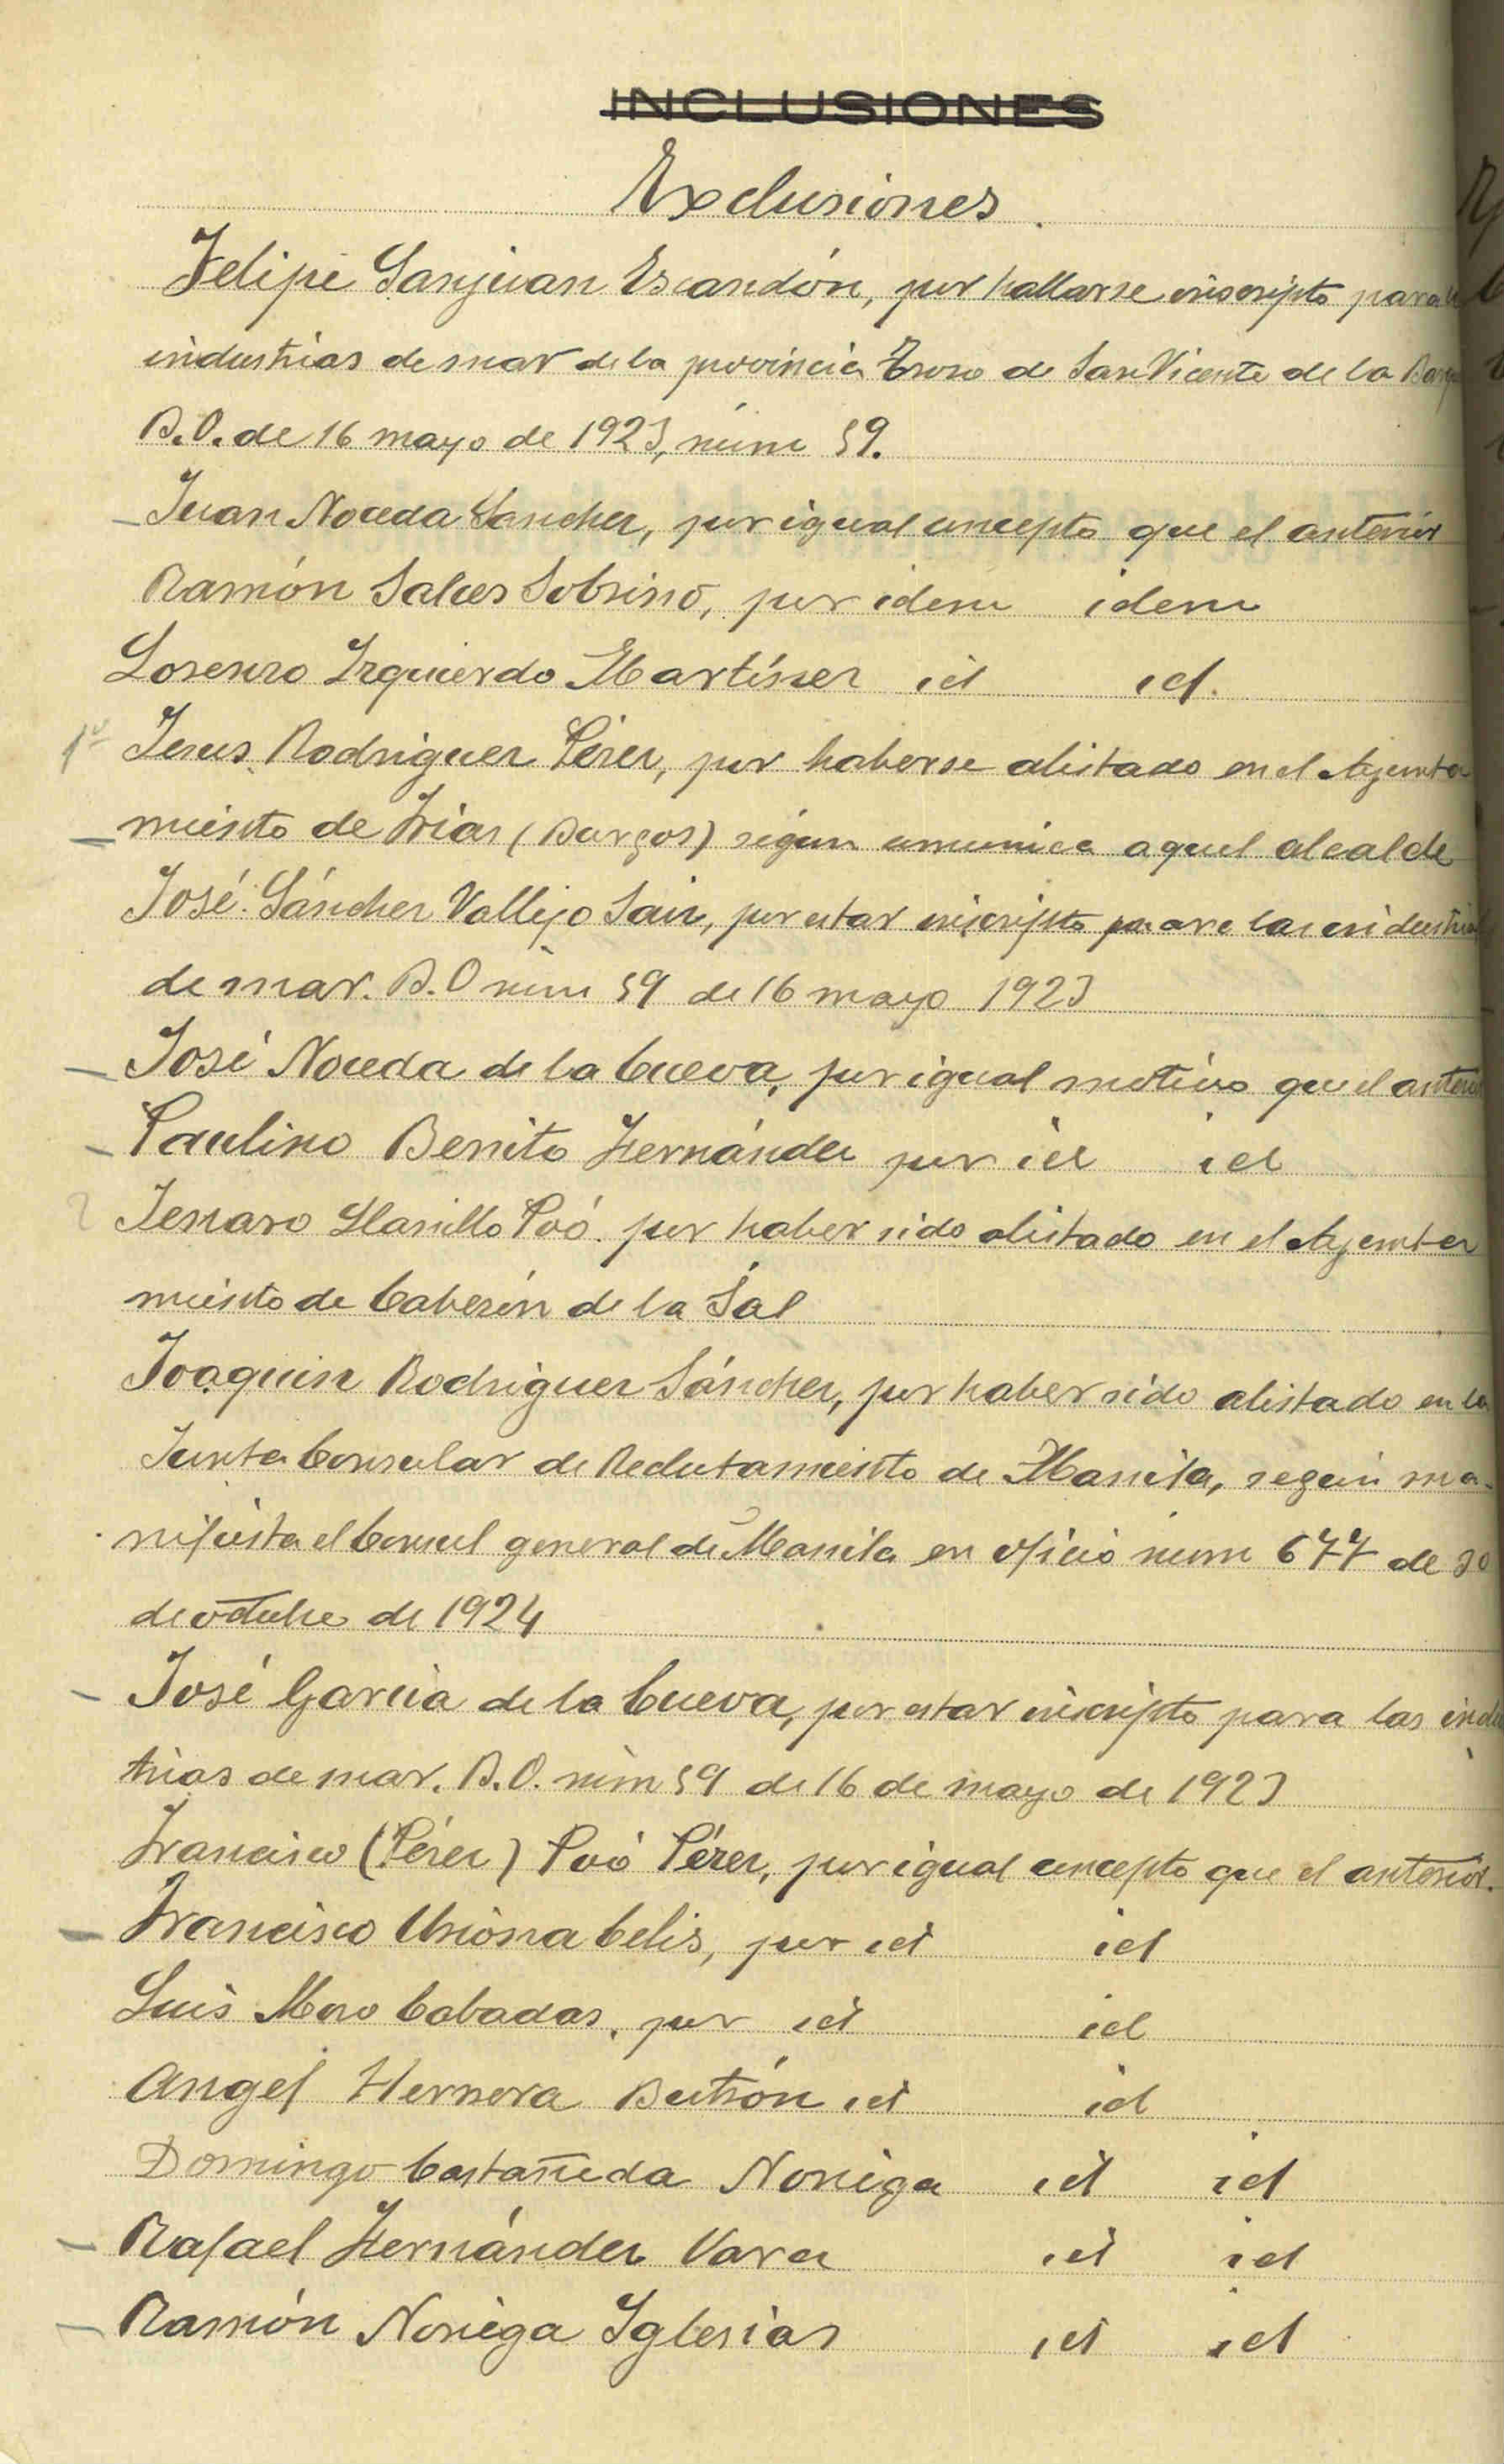 INCLUSIONES
Exclusiones
Felipe Sanjuan Escandón, por hallarse inscripto para
industrias de mar de la provincia Trozo de San Vicente de la Barq
B.O. de 16 mayo de 1923, núm 59.
Juan Noceda Sanchez, por igual concepto que el anterior
Ramón Salces Sobrino, por idem idem
Lorenzo Izquierdo Martínez id id.
Jesus Rodriguez Pérez, por haberse alistado en el Ayunta
miento de Frias (Burgos) según comunica aquel alcalde
José Sánchez Vallejo Sainz, por estar inscripto para las industrias
de mar. B.O núm 59 de 16 mayo 1923
José Noceda de la Cueva, por igual motivo que el anterior
Paulino Benito Hernández por id id
Jenaro Llanillo Poó por haber sido alistado en el Ayunta
miento de Cabezón de la Sal
Joaquin Rodriguez Sánchez, por haber sido alistado en la
Junta Consular de Reclutamiento de Manila, según ma-
nifiesta el Consul general de Manila en oficio núm 677 de 30
de octubre de 1924
José Garcia de la Cueva, por estar inscripto para las indus
trias de mar. B.O. núm 59 de 16 de mayo de 1923
Francisco (Pérez) Poó Pérez, por igual concepto que el anterior.
Francisco Unionabelis, por id id
Luis Moro Cabadas, por id id
Angel Herrera Butrón id id
Domingo Castañeda Noriega id id
Rafael Hernández Vara id id
Ramón Noriega Iglesias id id